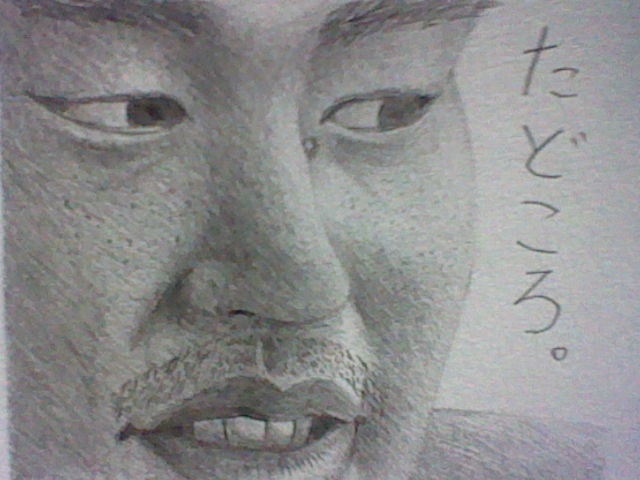 たどころ。